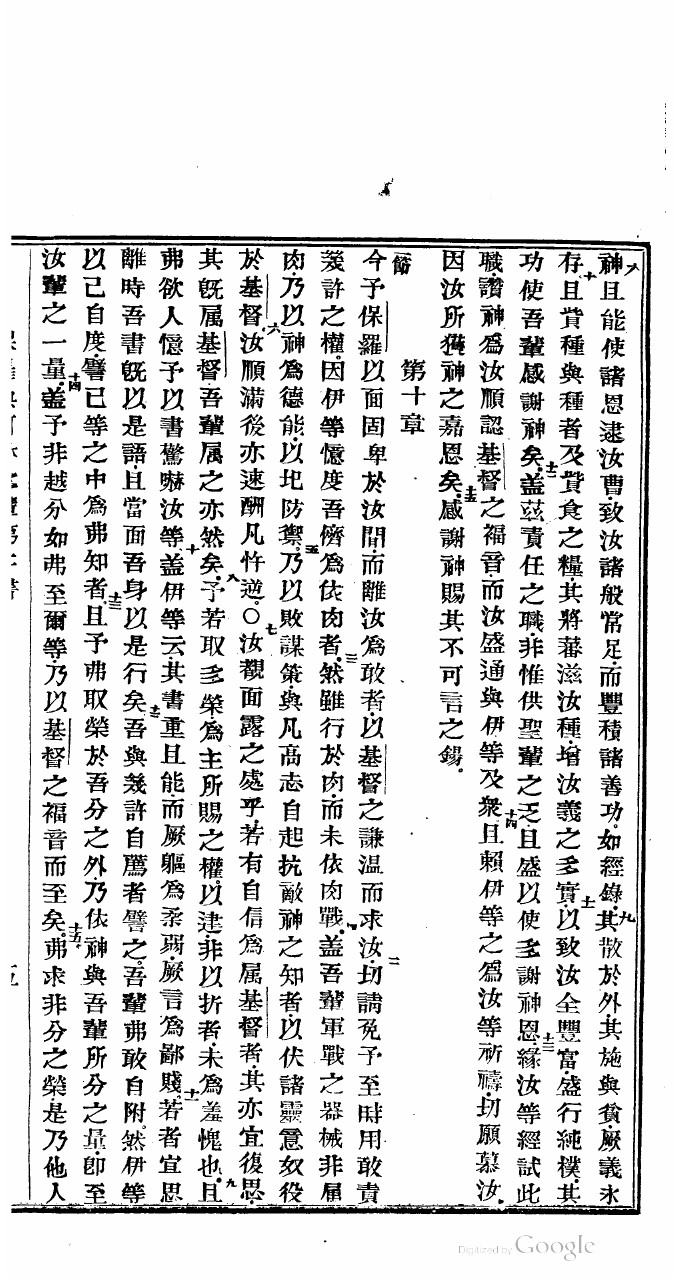 神且能使諸恩逮汝曹致汝諸般常足而豐積諸善功如經錄其散於外其施與貧厥義永
存且貲種與種者及貲食之糧其將蕃滋汝種增汝義之多實以致汝全豐富盛行純樸其
功使吾輩感謝神矣蓋茲責任之職非惟供聖輩之乏且盛以使多謝神恩緣汝等經試此
職讚神為汝順認基督之福音而汝盛通與伊等及衆且賴伊等之為汝等祈禱切願慕汝
因汝所獲神之嘉恩矣感謝神賜其不可言之錫。
第十章
節
今予保羅以面固卑於汝間而離汝為敢者以基督之謙温而求汝切請免予至時用敢責
幾許之權因伊等憶度吾儕為依肉者然雖行於肉而未依肉戰蓋吾輩軍戰之器械非屬
肉乃以神為德能以圮防禦乃以敗謀策與凡高志自起抗敵神之知者以伏諸靈意奴役
於基督汝順滿後亦速酬凡忤逆〇汝覩面露之處乎若有自信為属基督者其亦宜復思
其旣属基督吾輩属之亦然矣予若取多榮為主所賜之權以建非以折者未為羞愧也且
弗欲人憶予以書驚嚇汝等蓋伊等云其書重且能而厥軀為柔弱厥言為鄙賤若者宜思
離時吾書旣以是語且當面吾身以是行矣吾與幾許自薦者譬之吾輩弗敢自附然伊等
以己自度譬已等之中為弗知者且予弗取榮於吾分之外乃依神與吾輩所分之量卽至
汝輩之一量蓋予非越分如弗至爾等乃以基督之福音而至矣弗求非分之榮是乃他人
Digitized by Google